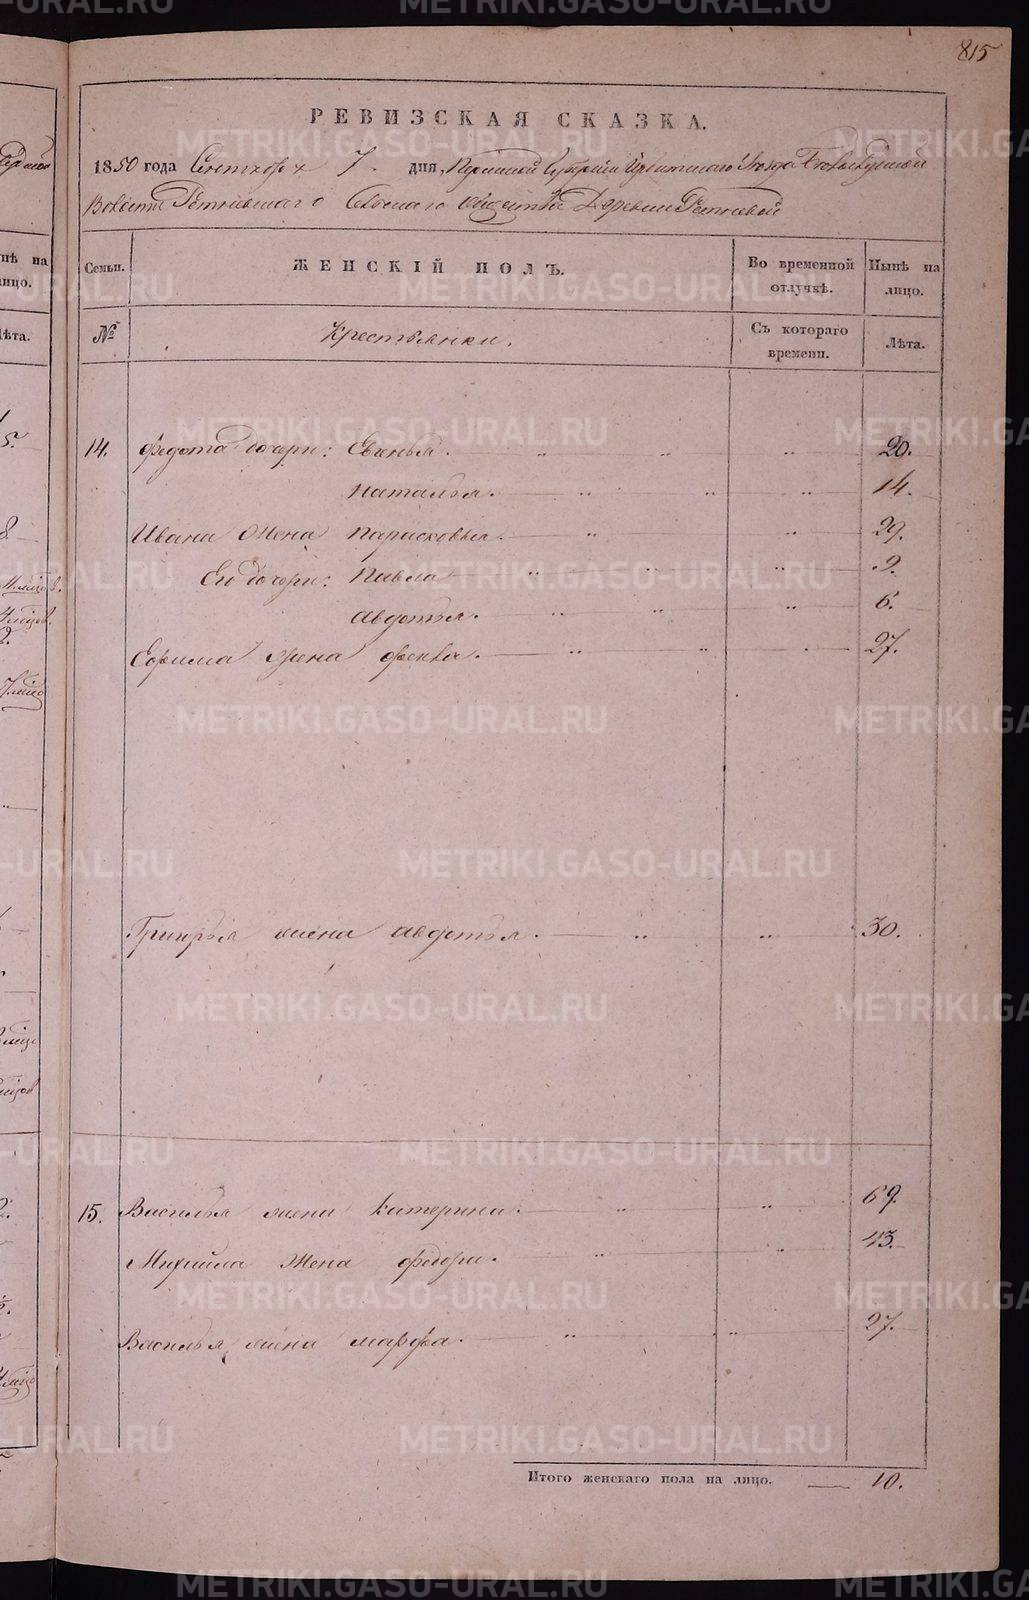 815
РЕВИЗСКАЯ СКАЗКА.
1850 года Сентября 7. дня, Пермской Губернии Ирбитскаго Уезда
Волости Сельскаго общества Деревни
Семьи. ЖЕНСКІЙ ПОЛЪ. Во временной отлучкѣ. Нынѣ на лицо.
№ Крестьянки. Съ котораго времени. Лѣта.
14. Федота дочери: Евгенья. 20.
Наталья. 14.
Ивана жена Парасковья. 29.
Его дочери: Павла 9.
Авдотья. 6.
Ефима жена Фекла. 27.
Григорья жена Авдотья. 30.
15. Василья жена Катерина. 69.
Михайла жена Федора. 43.
Василья жена Марфа. 27.
Итого женскаго пола на лицо. 10.
METRIKI.GASO-URAL.RU